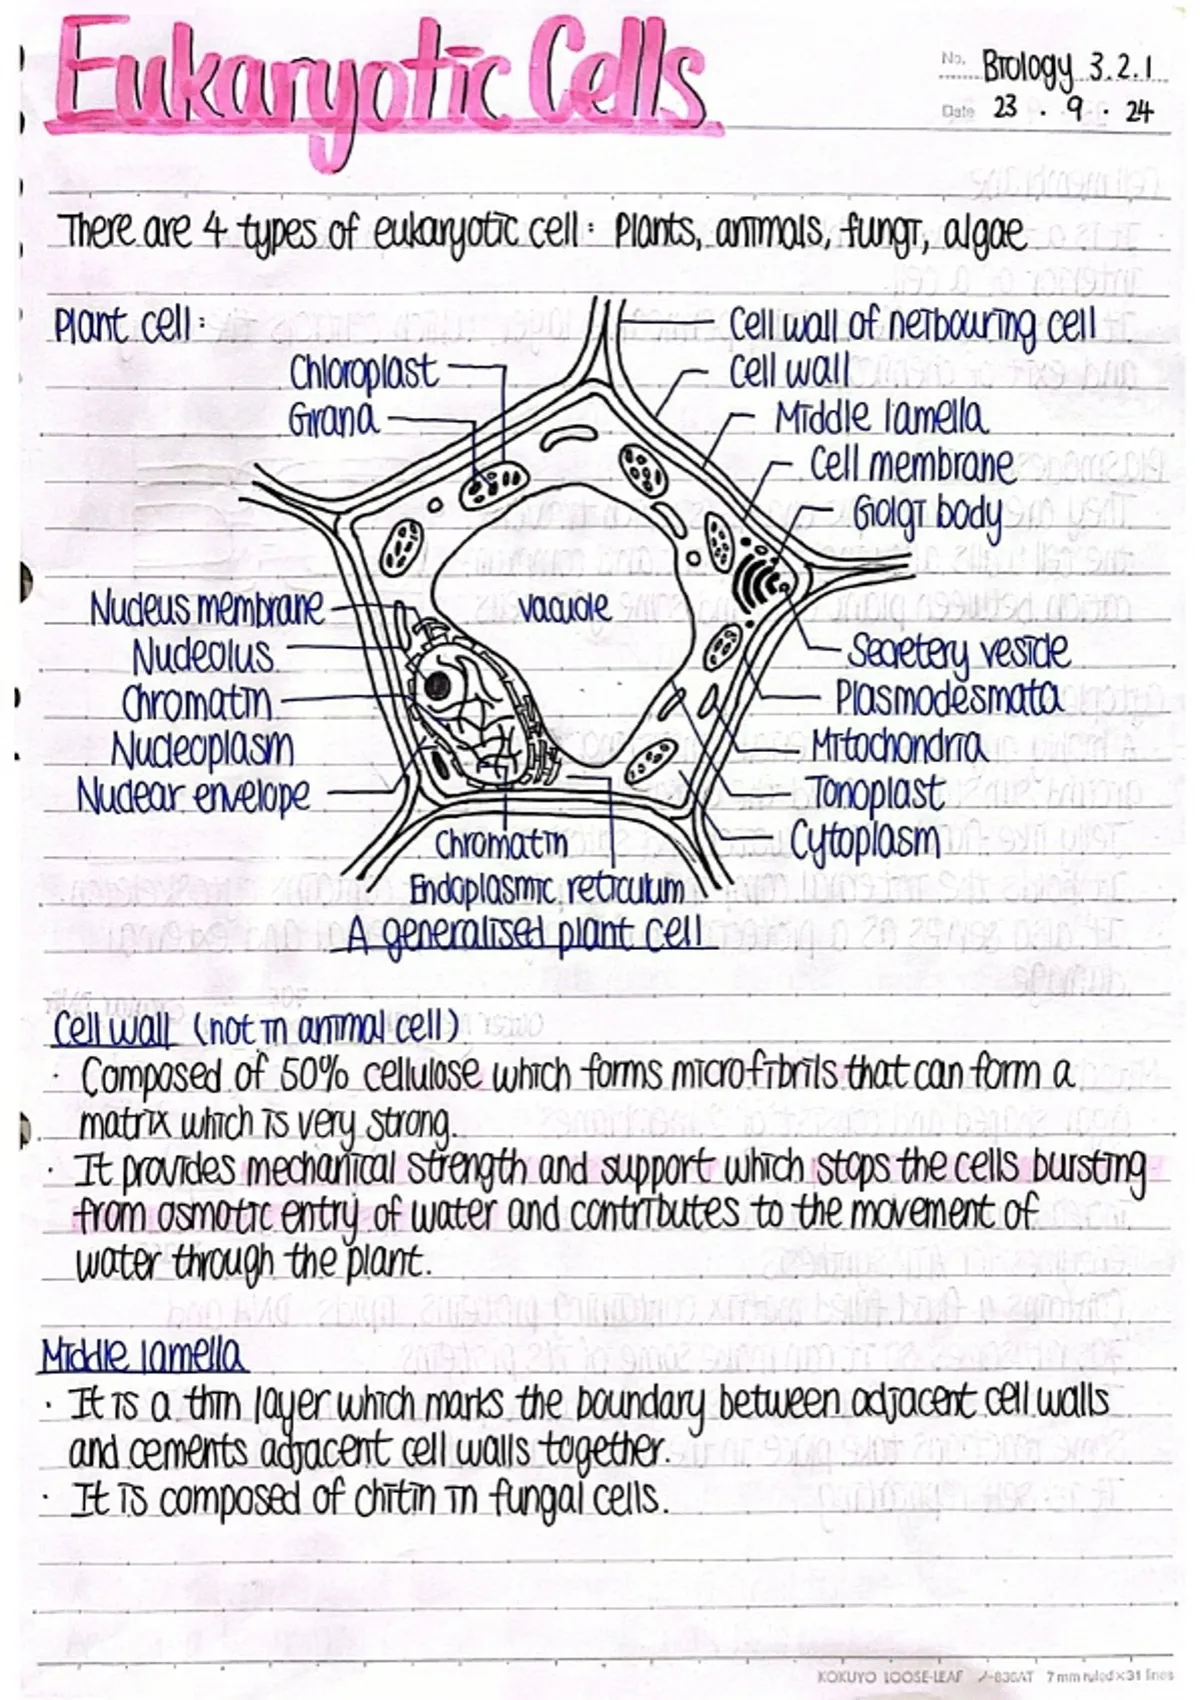 Eukaryotic Cells
No. Biology 3.2.1
Date 23 . 9 . 24
There are 4 types of eukaryotic cell: Plants, animals, fungi, algae
Plant cell:
Cell wall of neibouring cell
Chloroplast
Cell wall
Grana
Middle lamella
Cell membrane
Golgi body
Nucleus membrane
vacuole
Nucleolus
Secretery vesicle
Chromatin
Plasmodesmata
Nucleoplasm
Mitochondria
Nuclear envelope
Tonoplast
Chromatin
Cytoplasm
Endoplasmic reticulum
A generalised plant cell
Cell wall (not in animal cell)
· Composed of 50% cellulose which forms microfibrils that can form a
matrix which is very strong.
· It provides mechanical strength and support which stops the cells bursting
from osmotic entry of water and contributes to the movement of
water through the plant.
Middle lamella
· It is a thin layer which marks the boundary between adjacent cell walls
and cements adjacent cell walls together.
· It is composed of chitin in fungal cells.
KOKUYO LOOSE-LEAF ノ-836AT 7 mm ruled×31 lines